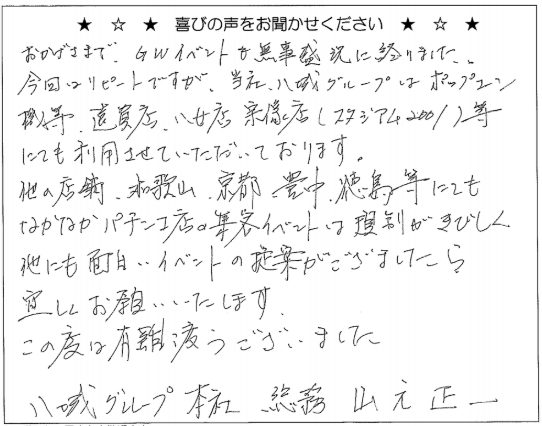 ★ ☆ ★ 喜びの声をお聞かせください ★ ☆ ★
おかげさまで、GWイベントが無事盛況に終りました。
今回はリピートですが、当社、八城グループはポップコーン
機等、遠賀店、八女店、宗像店(スタジアム2001)等
にても利用させていただいております。
他の店舗、和歌山、京都、豊中、徳島等にても
なかなかパチンコ店の集客イベントは規制がきびしく
他にも面白いイベントの提案がございましたら
宜しくお願いいたします。
この度は有難うございました
八城グループ 本社 総務 山元 正一